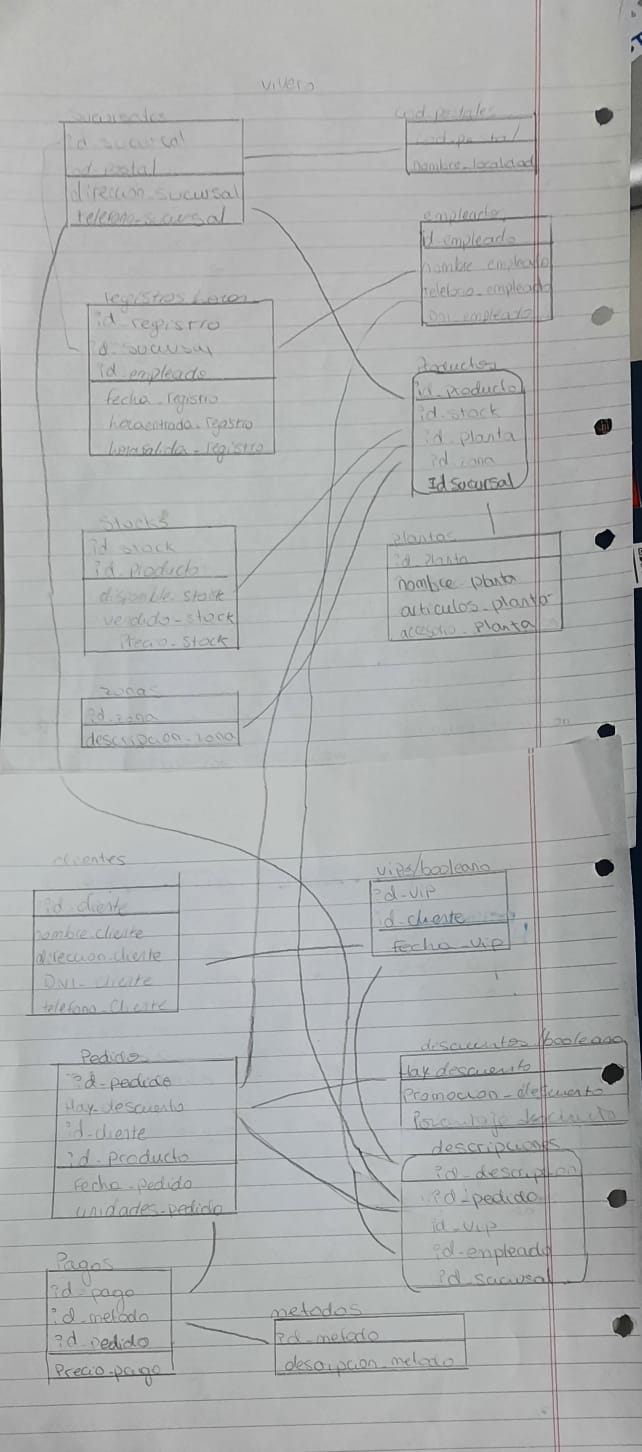 vivero
sucursales
id_sucursal
cod_postal
direccion_sucursal
telefono_sucursal
cod_postales
cod_postal
nombre_localidad
empleado
id_empleado
nombre_empleado
telefono_empleado
DNI_empleado
registros
id_registro
id_sucursal
id_empleado
fecha_registro
horaentrada_registro
horasalida_registro
Productos
id_producto
id_stock
id_planta
id_zona
Id sucursal
Stocks
id_stock
id_producto
disponible_stock
vendido_stock
Precio_stock
plantas
id_planta
nombre_planta
articulos_planta
accesorio_planta
zonas
id_zona
descripcion_zona
clientes
id_cliente
nombre_cliente
direccion_cliente
DNI_cliente
telefono_cliente
vips/booleano
id_vip
id_cliente
fecha_vip
Pedido
id_pedido
Hay_descuento
id_cliente
id_producto
Fecha_pedido
unidades_pedido
descuentos/booleano
Hay descuento
Promocion_descuento
Porcentaje_descuento
descripciones
id_descripcion
id_pedido
id_vip
id_empleado
id_sucursal
Pagos
id_pago
id_metodo
id_pedido
Precio_pago
metodos
id_metodo
descripcion_metodo